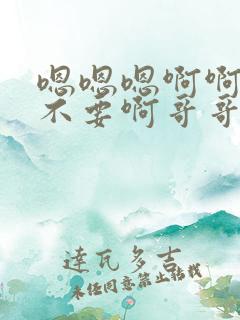 嗯嗯嗯啊啊
不要啊哥哥
達瓦多吉
未经同意禁止转载